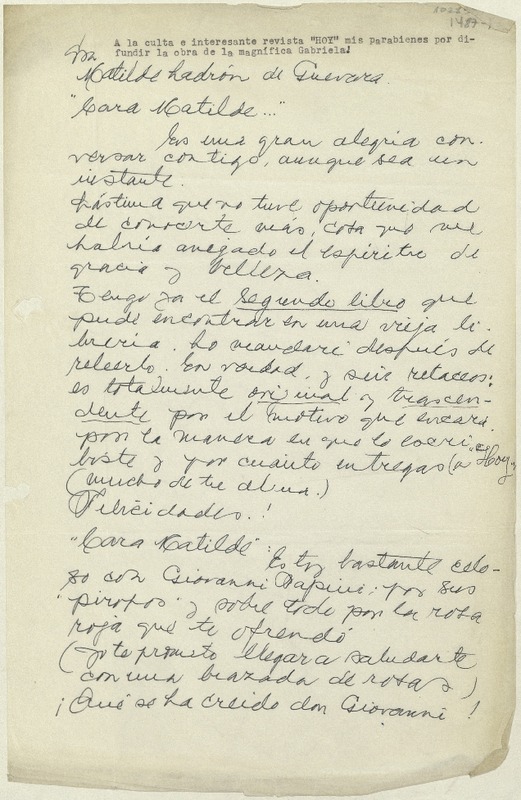 A la culta e interesante revista "HOY" mis parabienes por di-
fundir la obra de la magnífica Gabriela!
Sra
Matilde Ladrón de Guevara.
"Cara Matilde..."
Es una gran alegría con-
versar contigo, aunque sea un
instante.
Lástima que no tuve oportunidad
de conocerte más, cosa que me
habría anegado el espíritu de
gracia y belleza.
Tengo ya el segundo libro que
pude encontrar en una vieja li-
brería. Lo mandaré después de
releerlo. En verdad, y sin retaceos:
es totalmente original y trascen-
dente por el motivo que encara
por la manera en que lo escri-
biste y por cuanto entregas (a "Hoy")
(mucho de tu alma.)
Felicidades.!
"Cara Matilde":
Estoy bastante celo-
so con Giovanni Papini; por sus
"piropos" y sobre todo por la rosa
roja que te ofrendó
(yo te prometo llegar a saludarte
con una brazada de rosas)
¡Qué se ha creido don Giovanni!